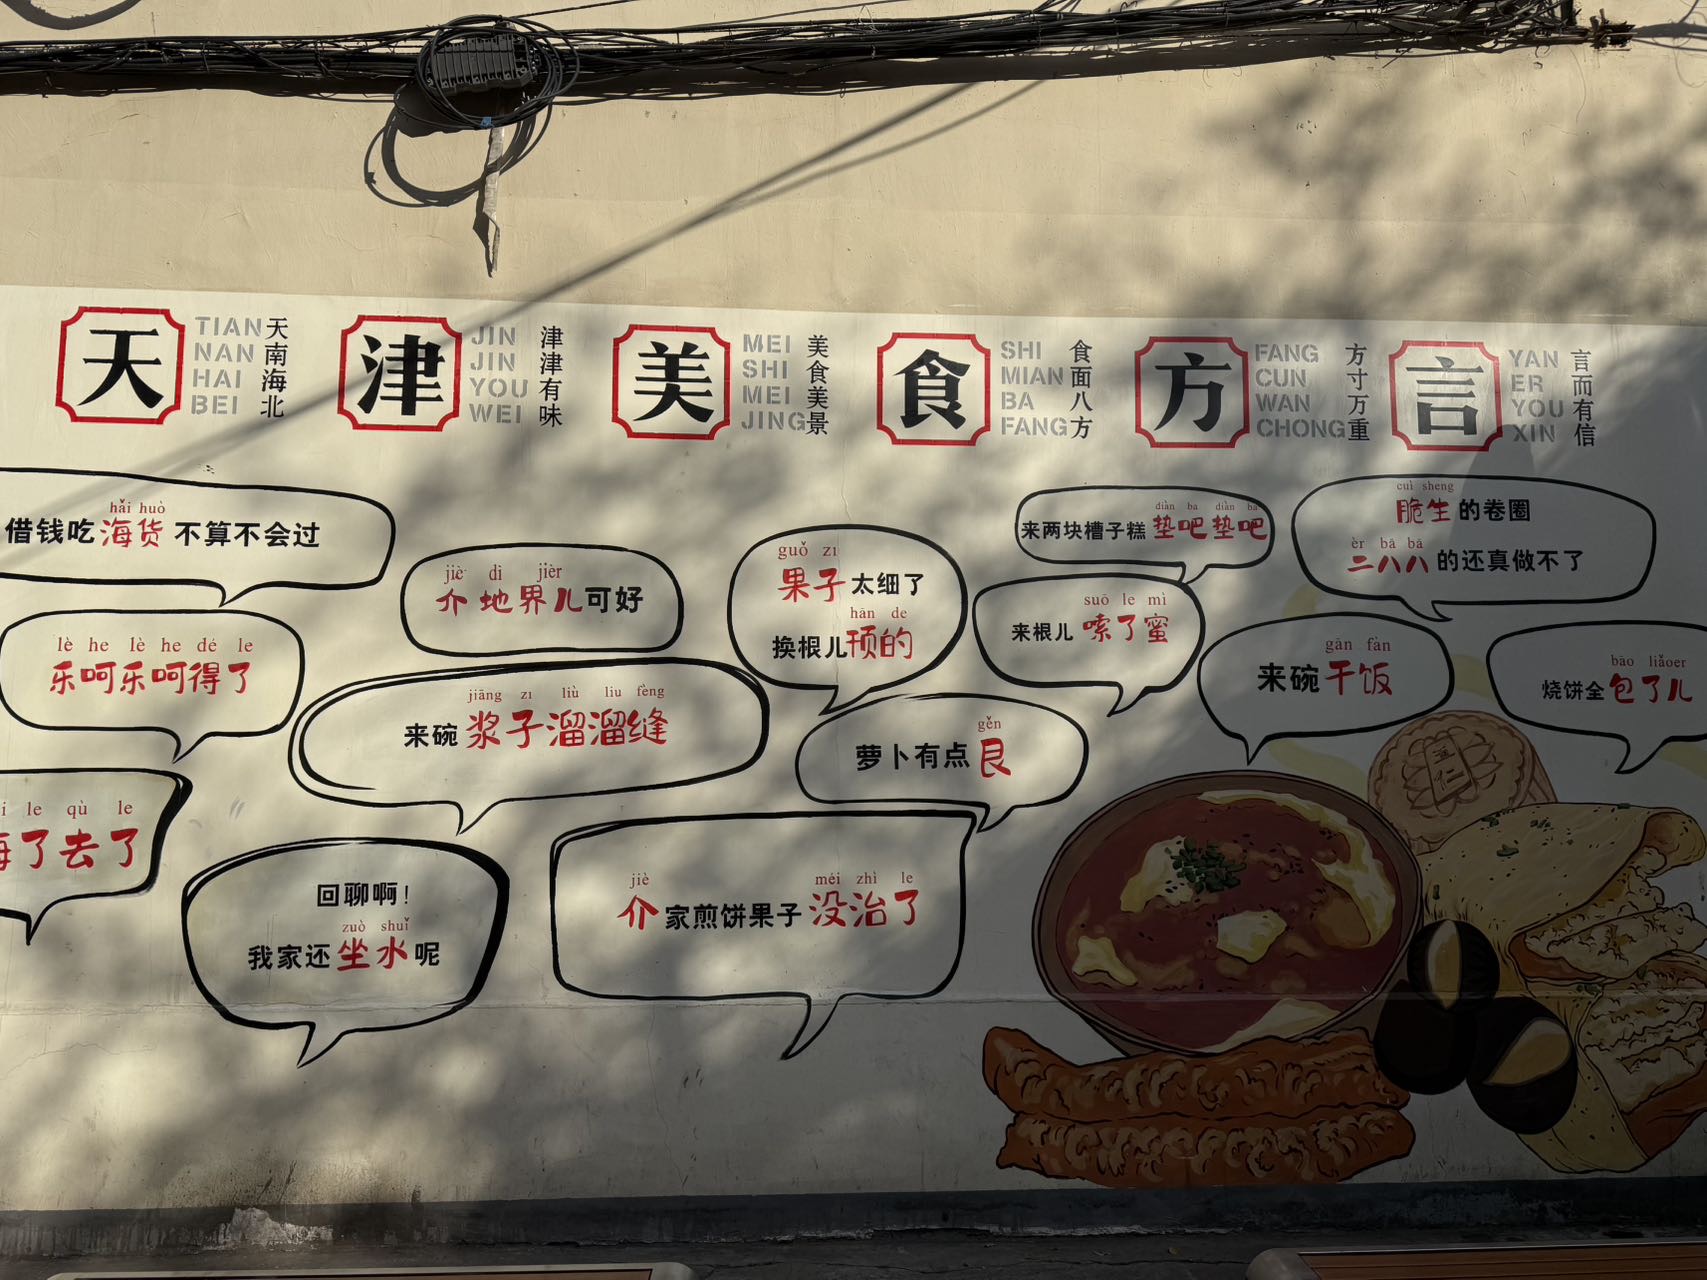 天
TIAN
NAN
HAI
BEI
天南海北
津
JIN
JIN
YOU
WEI
津津有味
美
MEI
SHI
MEI
JING
美食美景
食
SHI
MIAN
BA
FANG
食面八方
方
FANG
CUN
WAN
CHONG
方寸万重
言
YAN
ER
YOU
XIN
言而有信
hǎi huò
借钱吃海货不算不会过
jiè dì jièr
介地界儿可好
guǒ zi
果子太细了
hān de
换根儿顸的
diàn ba diàn ba
来两块槽子糕垫吧垫吧
cuì sheng
脆生的卷圈
èr bā bā
二八八的还真做不了
lè he lè he dé le
乐呵乐呵得了
jiāng zi liù liu fèng
来碗浆子溜溜缝
suō le mì
来根儿嗦了蜜
gān fàn
来碗干饭
bāo liǎoer
烧饼全包了儿
gěn
萝卜有点艮
le qù le
了去了
回聊啊!
zuò shuǐ
我家还坐水呢
jiè méi zhì le
介家煎饼果子没治了
五仁